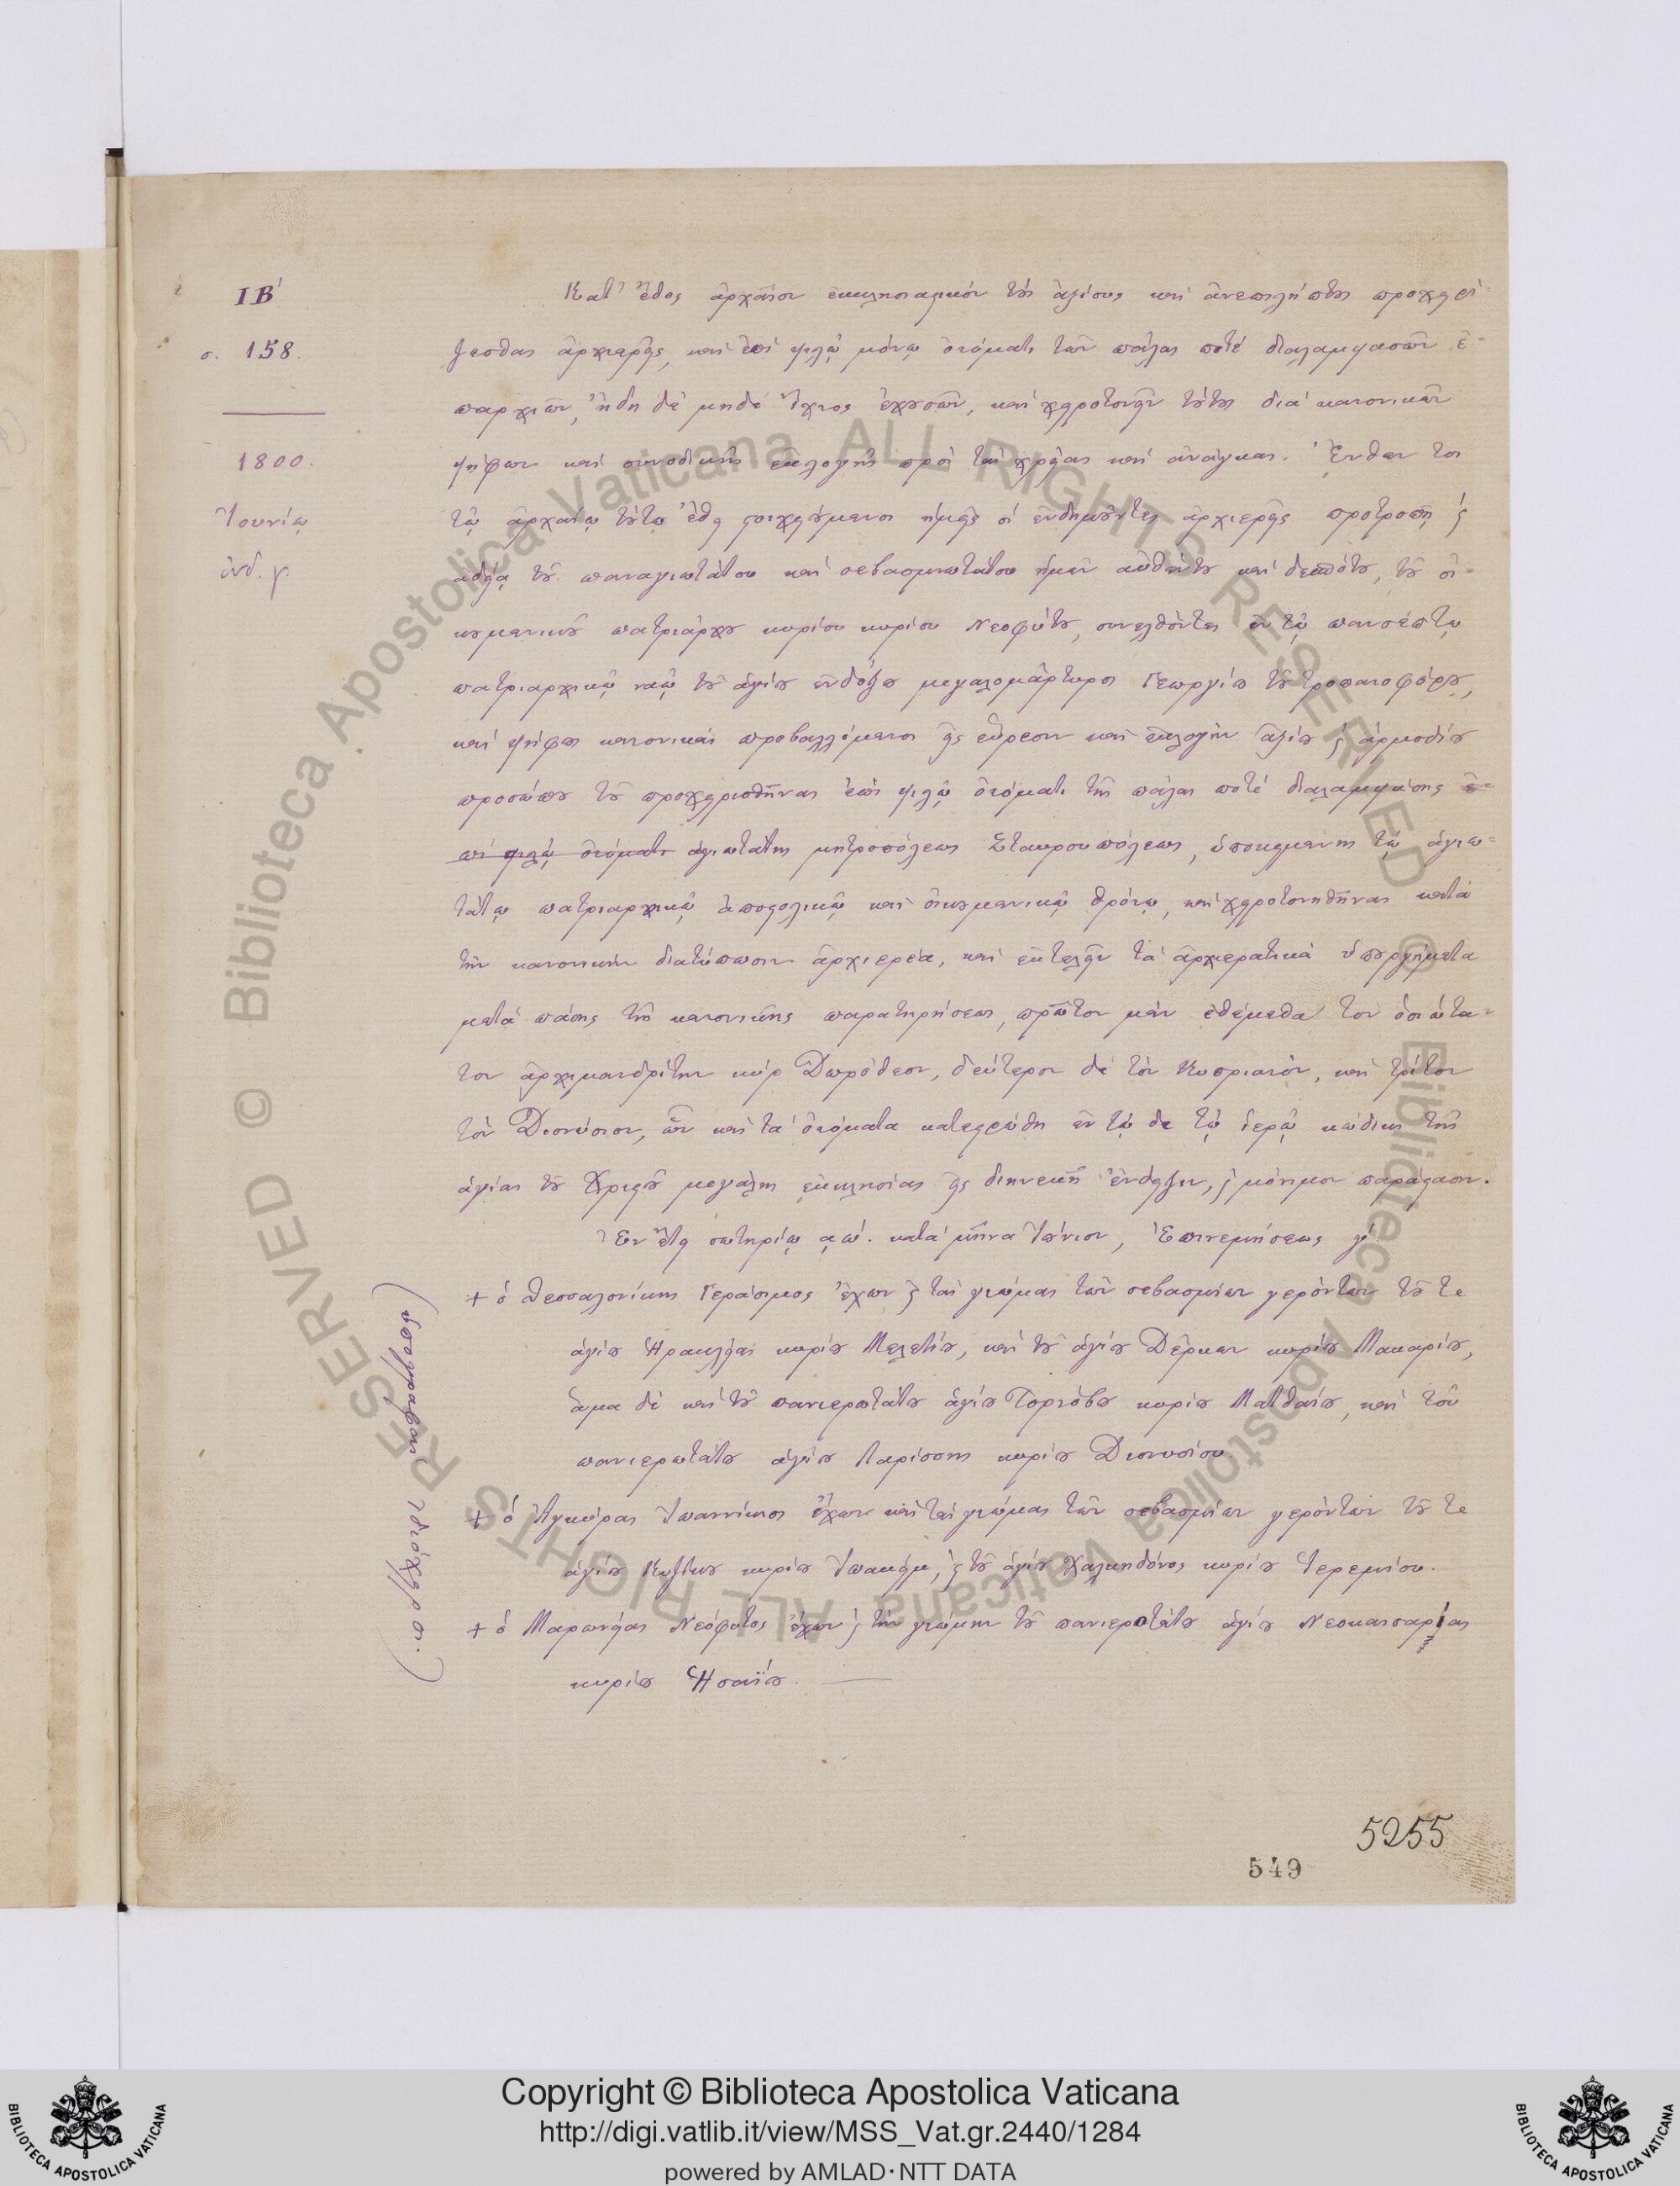 ΙΒ΄
σ. 158.
1800.
Ἰουνίῳ
ἰνδ. γ.
Κατ' ἔθος ἀρχαῖον ἐκκλησιαστικὸν τοὺς ἀξίους καὶ ἀνεπιλήπτους προχειρί-
ζεσθαι ἀρχιερεῖς, καὶ ἐπὶ ψιλῷ μόνῳ ὀνόματι τῶν πάλαι ποτὲ διαλαμψασῶν ἐ-
παρχιῶν, ἤδη δὲ μηδὲ ἴχνος ἐχουσῶν, καὶ χειροτονεῖν τούτους διὰ κανονικῶν
ψήφων καὶ συνοδικῆς ἐκλογῆς πρὸς τὰς χρείας καὶ ἀνάγκας. Ἔνθεν τοι
τῷ ἀρχαίῳ τούτῳ ἔθει στοιχούμενοι ἡμεῖς οἱ ἐνδημοῦντες ἀρχιερεῖς προτροπῇ ϛ
ἀδείᾳ τοῦ παναγιωτάτου καὶ σεβασμιωτάτου ἡμῶν αὐθέντου καὶ δεσπότου, τοῦ οἰ-
κουμενικοῦ πατριάρχου κυρίου κυρίου Νεοφύτου, συνελθόντες ἐν τῷ πανσέπτῳ
πατριαρχικῷ ναῷ τοῦ ἁγίου ἐνδόξου μεγαλομάρτυρος Γεωργίου τοῦ τροπαιοφόρου,
καὶ ψήφους κανονικὰς προβαλλόμενοι εἰς εὕρεσιν καὶ ἐκλογὴν ἀξίου ϛ ἁρμοδίου
προσώπου τοῦ προχειρισθῆναι ἐπὶ ψιλῷ ὀνόματι τῆς πάλαι ποτὲ διαλαμψάσης ἐ-
πὶ ψιλῷ ὀνόματι ἁγιωτάτης μητροπόλεως Σταυρουπόλεως, ὑποκειμένης τῷ ἁγιω-
τάτῳ πατριαρχικῷ ἀποστολικῷ καὶ οἰκουμενικῷ θρόνῳ, καὶ χειροτονηθῆναι κατὰ
τὴν κανονικὴν διατύπωσιν ἀρχιερέα, καὶ ἐκτελεῖν τὰ ἀρχιερατικὰ ὑπουργήματα
μετὰ πάσης τῆς κανονικῆς παρατηρήσεως, πρῶτον μὲν ἐθέμεθα τὸν ὁσιώτα-
τον ἀρχιμανδρίτην κὺρ Δωρόθεον, δεύτερον δὲ τὸν Κυπριανόν, καὶ τρίτον
τὸν Διονύσιον, ὧν καὶ τὰ ὀνόματα κατεστρώθη ἐν τῷ δε τῷ ἱερῷ κώδικι τῆς
ἁγίας τοῦ Χριστοῦ μεγάλης ἐκκλησίας εἰς διηνεκῆ ἔνδειξιν, ϛ μόνιμον παράστασιν.
Ἐν ἔτει σωτηρίῳ αω΄. κατὰ μῆνα Ἰούνιον, Ἐπινεμήσεως γ΄.
(ὑπογραφαὶ ἰδιόχειροι.)
+ ὁ Θεσσαλονίκης Γεράσιμος ἔχων ϛ τὰς γνώμας τῶν σεβασμίων γερόντων τοῦ τε
ἁγίου Ἡρακλείας κυρίου Μελετίου, καὶ τοῦ ἁγίου Δέρκων κυρίου Μακαρίου,
ἅμα δὲ καὶ τοῦ πανιερωτάτου ἁγίου Τορνόβου κυρίου Ματθαίου, καὶ τοῦ
πανιερωτάτου ἁγίου Λαρίσσης κυρίου Διονυσίου.
+ ὁ Ἀγκύρας Ἰωαννίκιος ἔχων καὶ τὰς γνώμας τῶν σεβασμίων γερόντων τοῦ τε
ἁγίου Κυζίκου κυρίου Ἰωακείμ, ϛ τοῦ ἁγίου Χαλκηδόνος κυρίου Ἱερεμίου.
+ ὁ Μαρωνείας Νεόφυτος ἔχων ϛ τὴν γνώμην τοῦ πανιερωτάτου ἁγίου Νεοκαισαρίας
κυρίου Ἡσαΐου.
5255
549
© Biblioteca Apostolica Vaticana ALL RIGHTS RESERVED © Biblioteca Apostolica Vaticana ALL RIGHTS RESERVED
BIBLIOTECA APOSTOLICA VATICANA
Copyright © Biblioteca Apostolica Vaticana
http://digi.vatlib.it/view/MSS_Vat.gr.2440/1284
powered by AMLAD·NTT DATA
BIBLIOTECA APOSTOLICA VATICANA